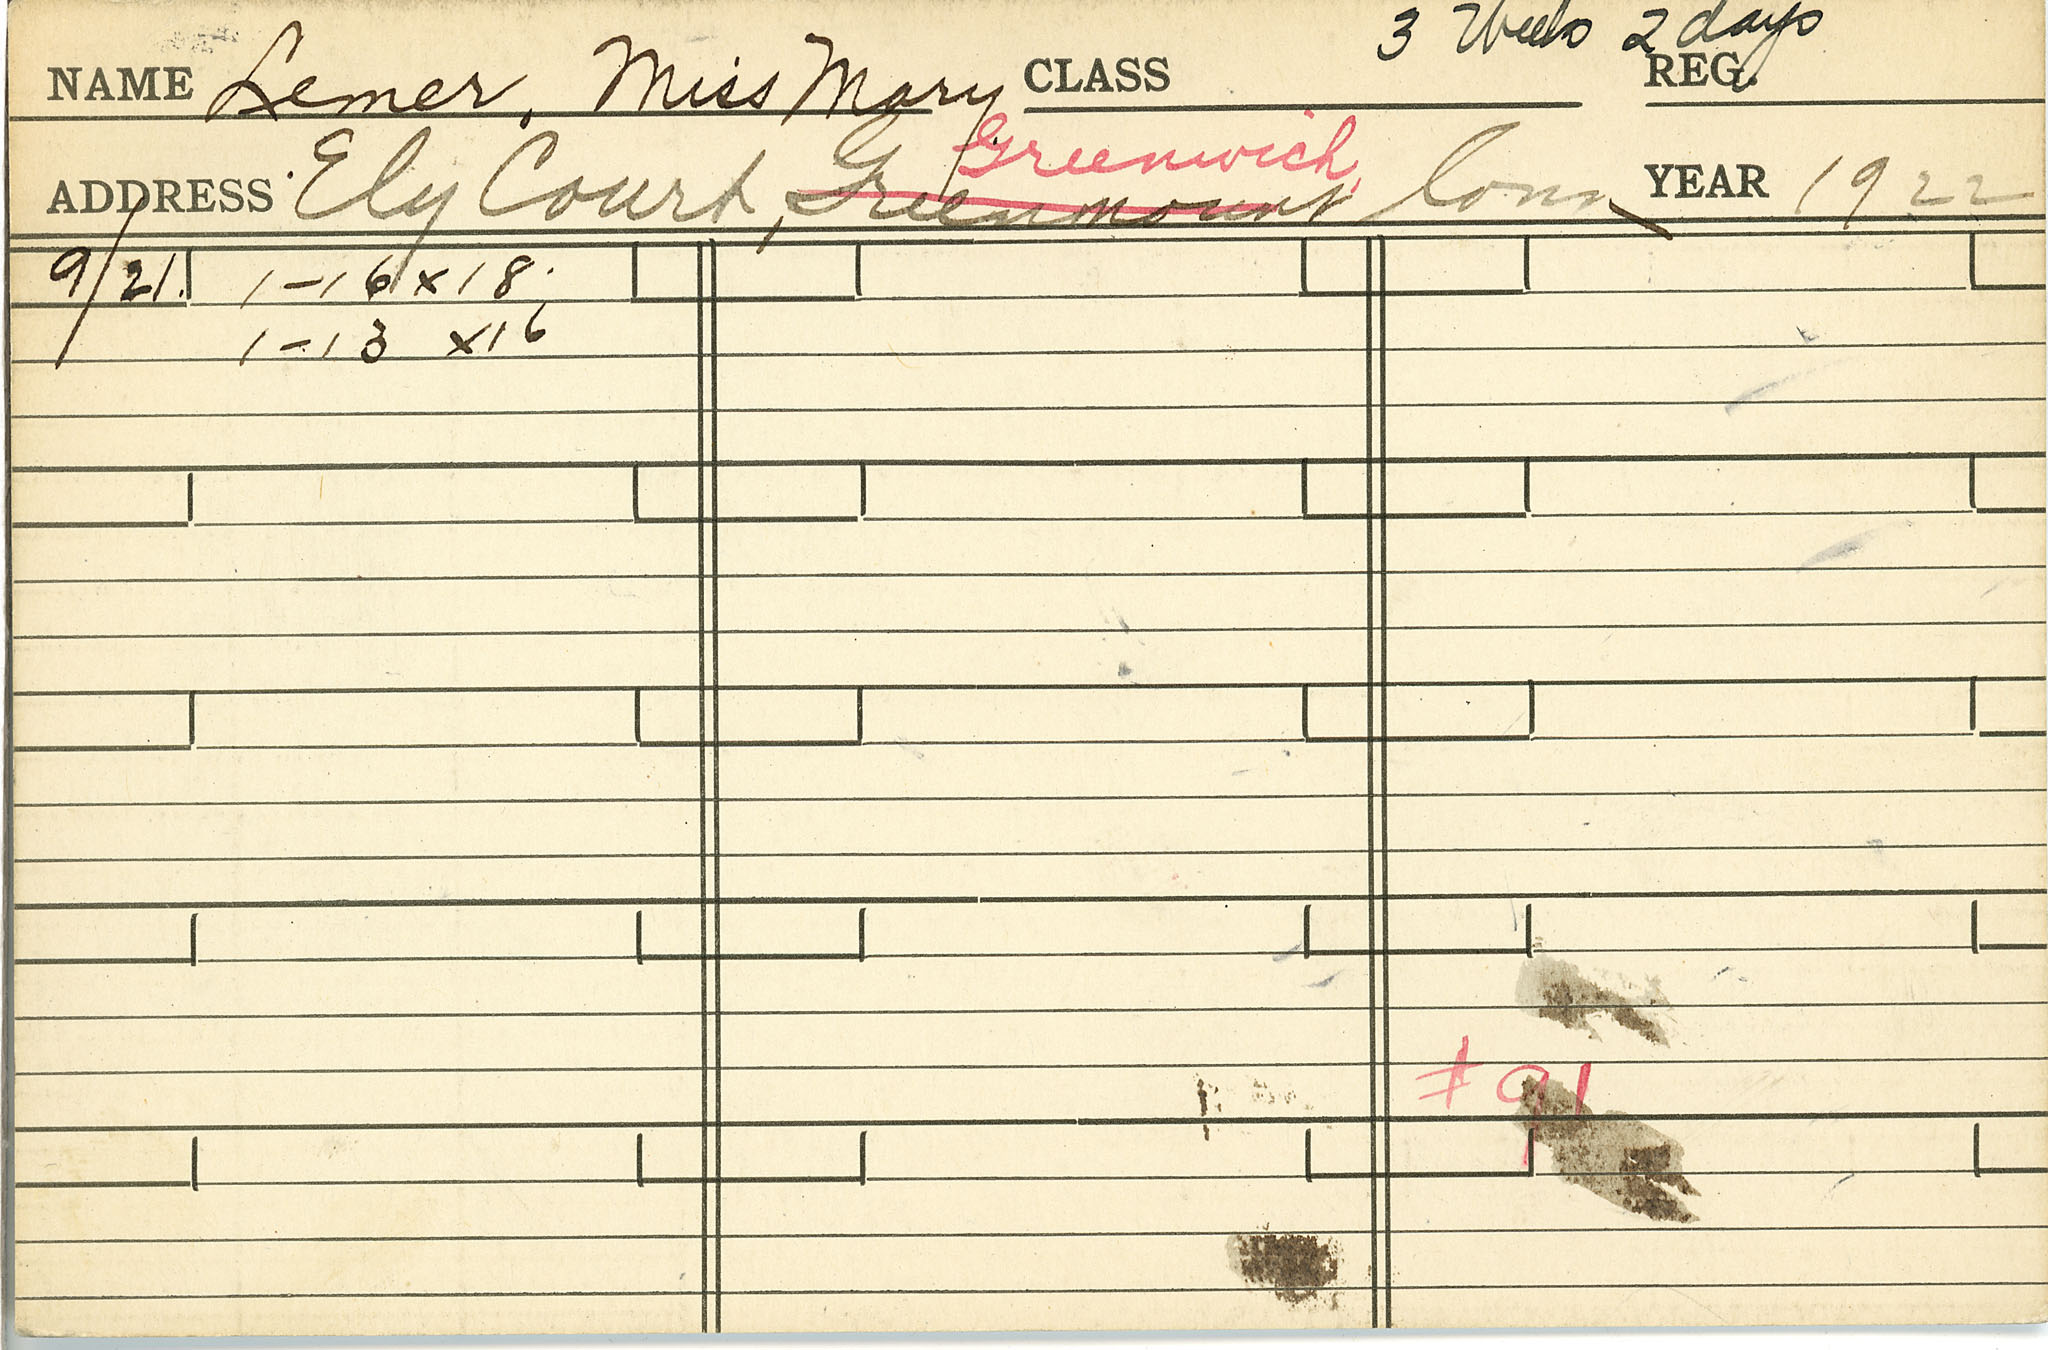 3 Weeks 2 days
NAME Lemer, Miss Mary CLASS REG.
Greenwich,
ADDRESS Ely Court, Greenmount Conn YEAR 1922
9/21. 1-16x18.
1-13 x16
#91